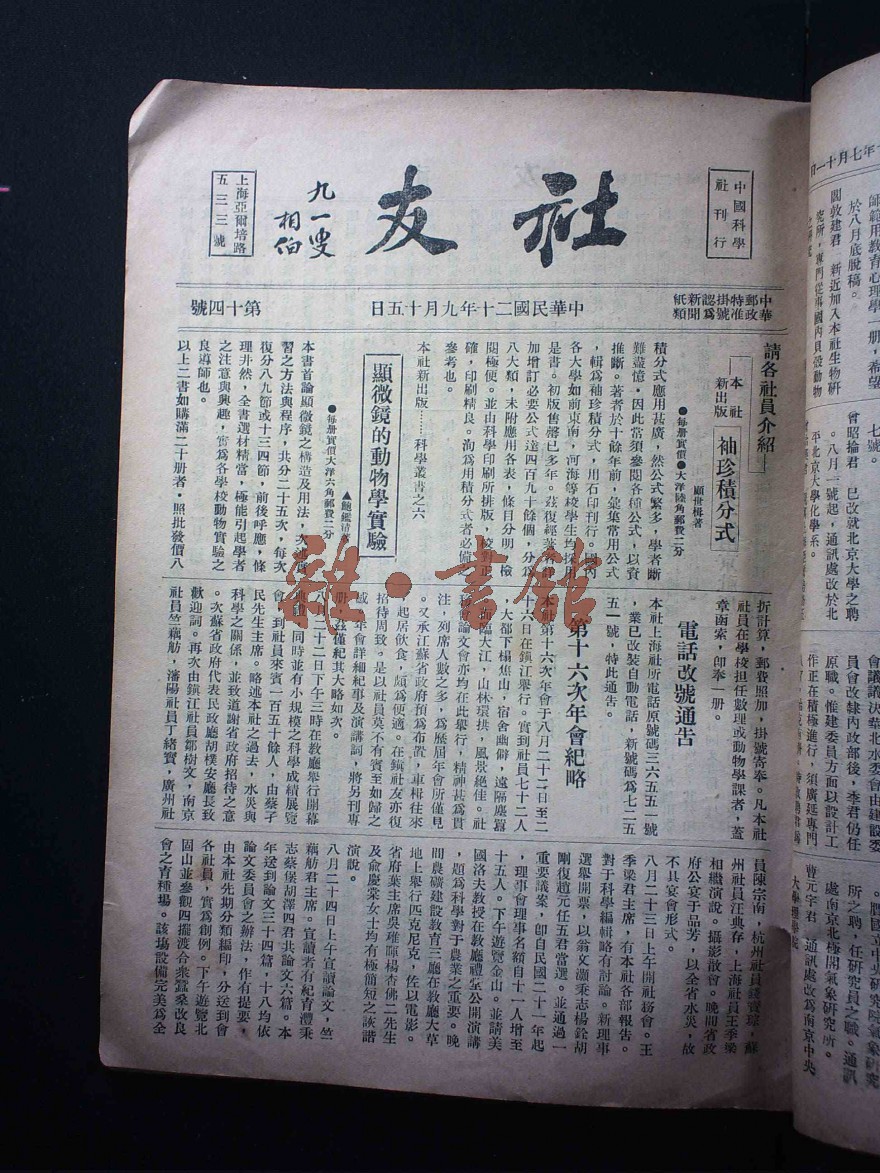 社友
九一叟
相伯
中國科學
社刊行
上海亞爾培路
五三三號
中華郵政特准掛號認爲新聞紙類
中華民國二十年九月十五日
第十四號
請各社員介紹
本社
新出版
袖珍積分式
顧世楫著
●每册實價●大洋陸角郵費二分
積分式應用甚廣，然公式繁多，學者斷
難盡憶，因此當須參閱各種公式，以資
推斷。著者於十餘年前，彙集常用公式
，輯爲袖珍積分式，用石印刊行。國內
各大學如前東南，河海等校學生均採用
是書。初版售罄已多年。茲復經著者
加增訂必要公式達四百九十餘個，分爲
八大類，末附應用各表，條目分明，檢
閱極便。並由科學印刷所排版，校對正
確，印刷精良。洵爲用積分式者必備之
參考也。
本社新出版……科學叢書之六
顯微鏡的動物學實驗
▲鮑鑑清著
●每册實價大洋六角郵費二分
本書首論顯微鏡之構造及用法，次述實
習之方法與程序，共分二十五次，每次
復分八九節或十三四節，前後呼應，條
理井然，全書選材精當，極能引起學者
之注意與興趣，實爲各學校動物實驗之
良導師也。
以上二書如購滿二十册者，照批發價八
折計算，郵費照加，掛號寄奉。凡本社
社員在學校担任數理或動物學課者，蓋
章函索，卽奉一册。
電話改號通告
本社上海社所電話原號碼三六五五一號
，業已改裝自動電話，新號碼爲七二五
五一號，特此通告。
第十六次年會紀略
本社第十六次年會于八月二十二日至二
十六日在鎮江舉行。實到社員七十二人
，大都下榻焦山，宿舍幽僻，遠隔塵囂
，面臨大江，山林環拱，風景絕佳。社
務會論文會亦均在此舉行，精神甚爲貫
注，列席人數之多，爲歷屆年會所僅見
。又承江蘇省政府預爲布置，車楫往來
，起居飲食，頗爲便適。在鎮社友亦復
招待周致。是以社員莫不有賓至如歸之
感。年會詳細紀事及演講詞，將另刊專
册，茲僅紀其大略如次。
八月二十二日下午三時在教廳舉行開幕
典禮，同時並有小規模之科學成績展覽
會。到社員來賓一百五十餘人，由蔡孑
民先生主席。略述本社之過去，水災與
科學之關係，並致道謝省政府招待之意
。次蘇省政府代表民政廳胡樸安廳長致
歡迎詞。再次由鎮江社員鄒樹文，南京
社員竺藕舫，瀋陽社員丁緒寶，廣州社
員陳宗南，杭州社員錢寶琮，蘇
州社員汪典存，上海社員王季梁
相繼演說。攝影散會。晚間省政
府公宴于品芳，以全省水災，故
不具宴會形式。
八月二十三日上午開社務會。王
季梁君主席，有本社各部報告。
對于科學編輯略有討論。新理事
選舉開票，以翁文灝秉志楊銓胡
剛復趙元任五君當選。並通過一
重要議案，卽自民國二十一年起
，理事會理事名額自十一人增至
十五人。下午遊覽金山。並請美
國洛夫教授在教廳禮堂公開演講
，題爲科學對于農業之重要。晚
間農礦建設教育三廳在教廳大草
地上舉行匹克尼克，佐以電影。
省府葉主席吳稚暉楊杏佛二先生
及俞慶棠女士均有極簡短之詼諧
演說。
八月二十四日上午宣讀論文，竺
藕舫君主席。宣讀者有紀育灃秉
志蔡堡胡澤四君共論文六篇。本
年送到論文三十四篇，十八均依
論文委員會之辦法，作有提要，
由本社先期分類編印，分送到會
各社員，實爲創例。下午遊覽北
固山並參觀四擺渡合衆蠶桑改良
會之育種場。該塲設備完美爲全
年七月十一日
師範用教育心理學一册，希望
於八月底脫稿。
閻敦建君　新近加入本社生物研
究所，專門從事國內貝殼動物
七號。
曾昭掄君　已改就北京大學之聘
。八月一號起，通訊處改於北
平北京大學化學系。
會議議決華北水委會由建設委
員會改隸內政部後，李君仍任
原職。惟建委員方面以設計工
作正在積極進行，須廣廷專門
。膺國立中央研究院氣象研究
所之聘，任研究員之職。通訊
處南京北極閣氣象研究所。
曹元宇君　通訊處改爲南京中央
大學理學院
雜·書館